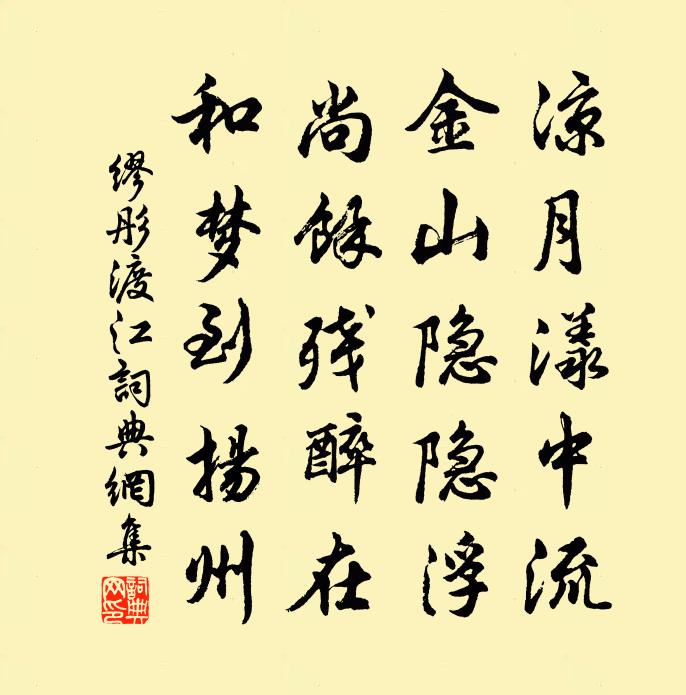 凉月漾中流
金山隐隐浮
尚馀残醉在
和梦到揚州
缪彤渡江詞典網集
詞典網印